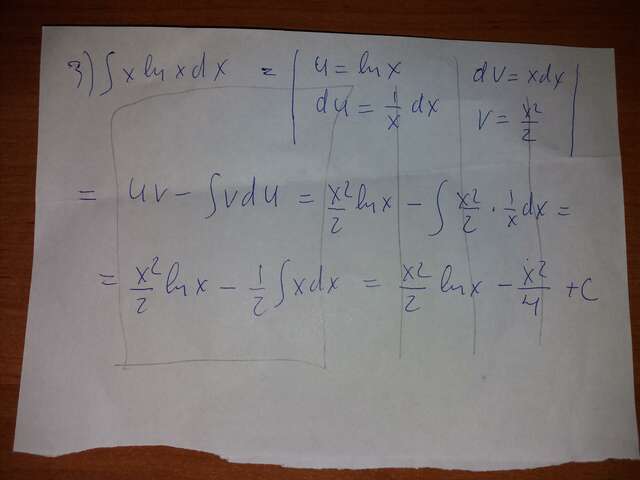 3) ∫ x ln x dx = | u = ln x | dv = x dx |
du = 1/x dx v = x²/2
= uv − ∫ v du = x²/2 ln x − ∫ x²/2 · 1/x dx =
= x²/2 ln x − 1/2 ∫ x dx = x²/2 ln x − x²/4 + C